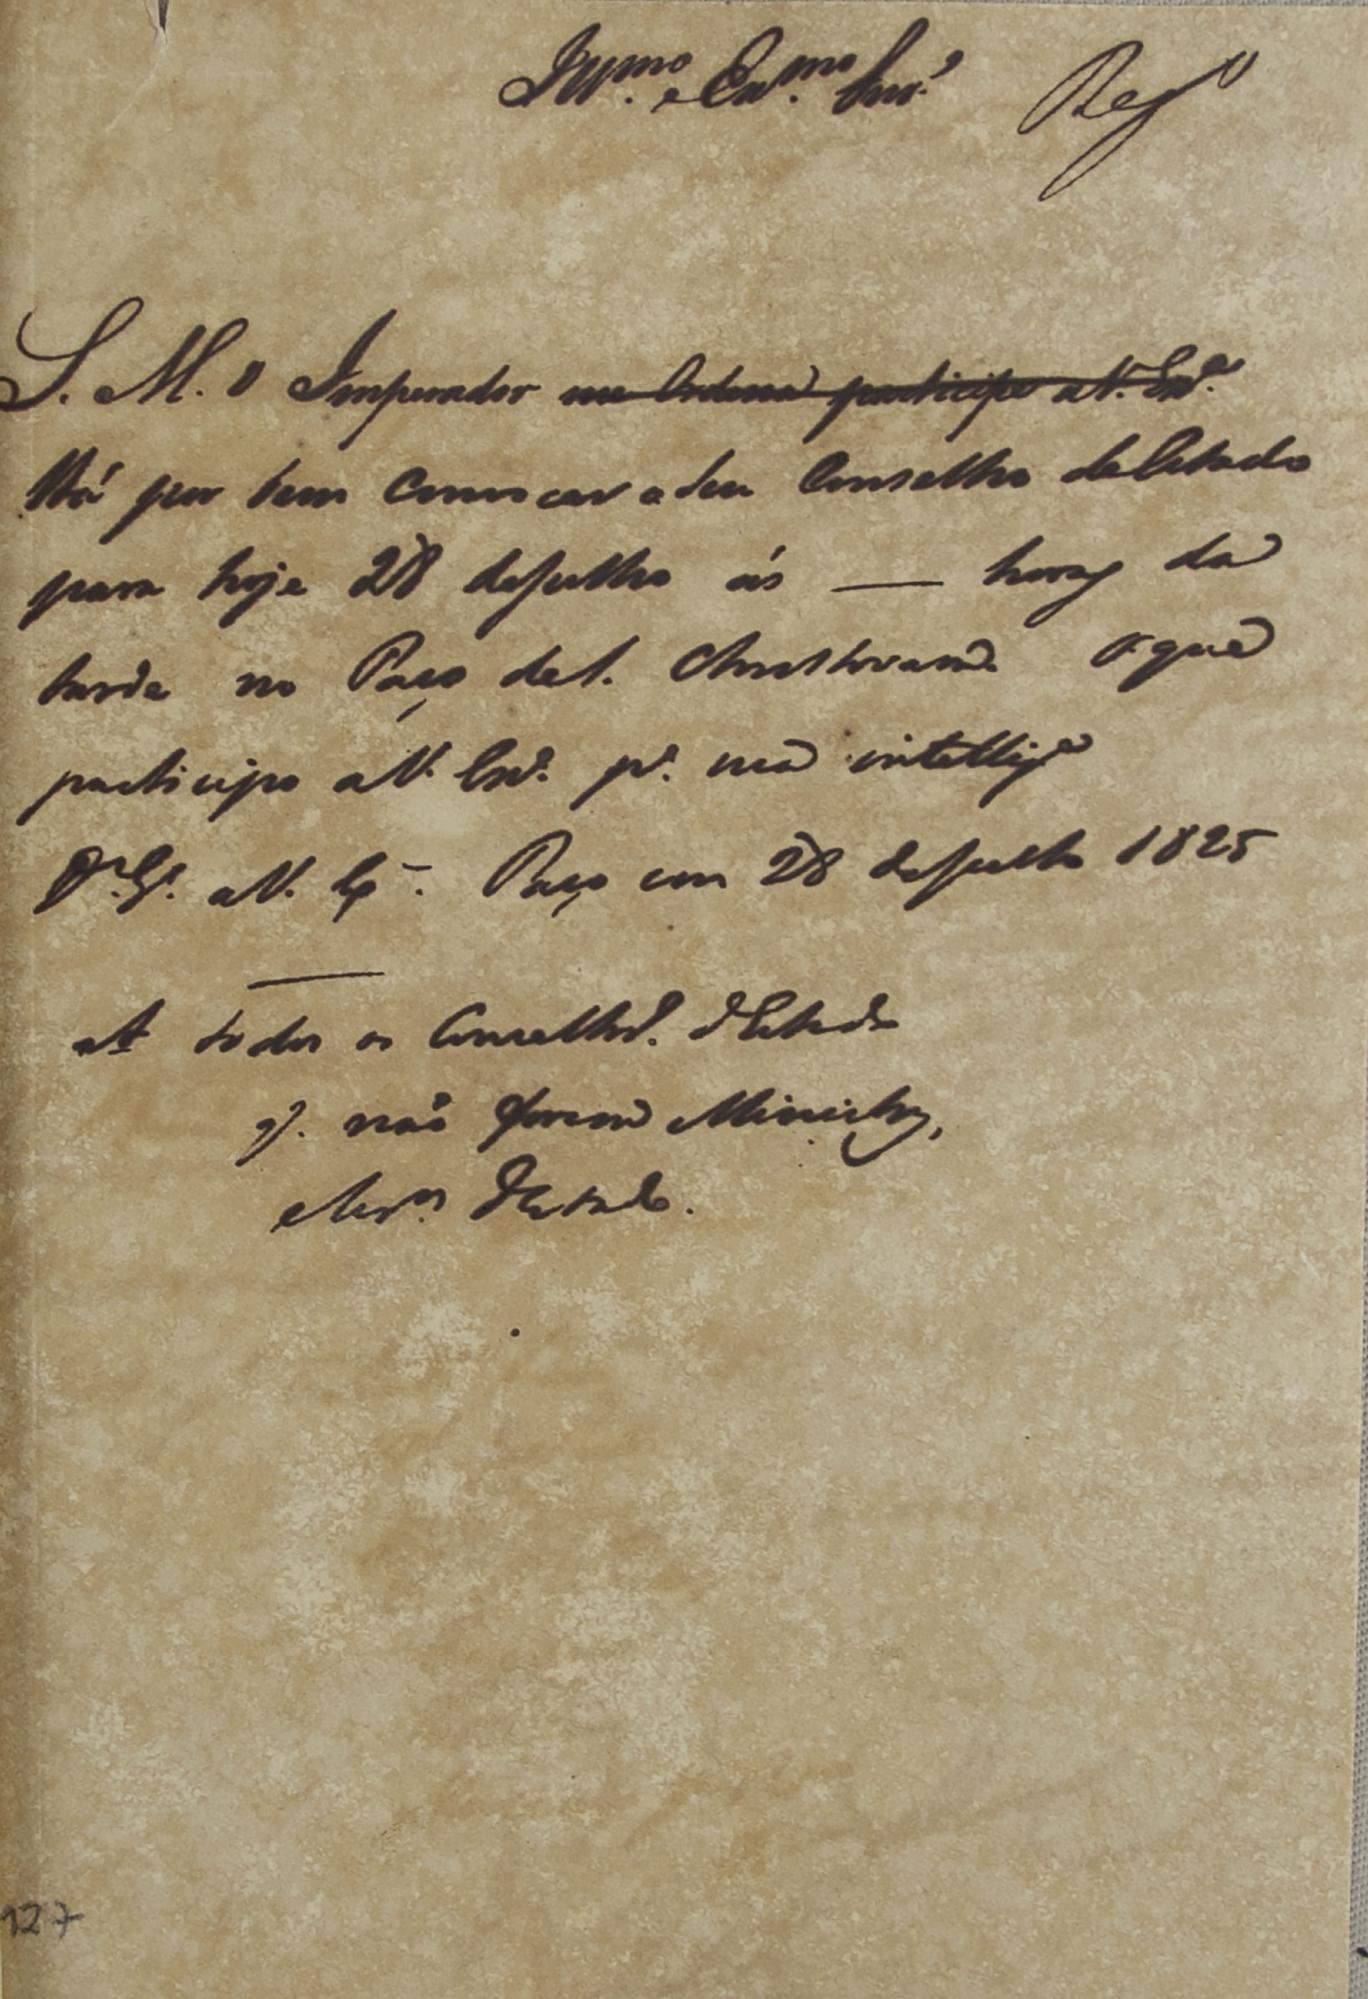 Illmo. e Exmo. Snr. Regº
S. M. O Imperador me Ordena participe a V. Exª.
Há por bem Convocar o Seu Conselho de Estado
para hoje 28 de Julho ás — horas da
tarde no Paço de S. Christovam o que
participo a V. Exª. pª. sua intelligª
Ds. Ge. a V. Exª. Paço em 28 de Julho 1825
A todos os Conselhos. d'Estado
q. não forem Ministros,
e Secros. d'Estado.
127